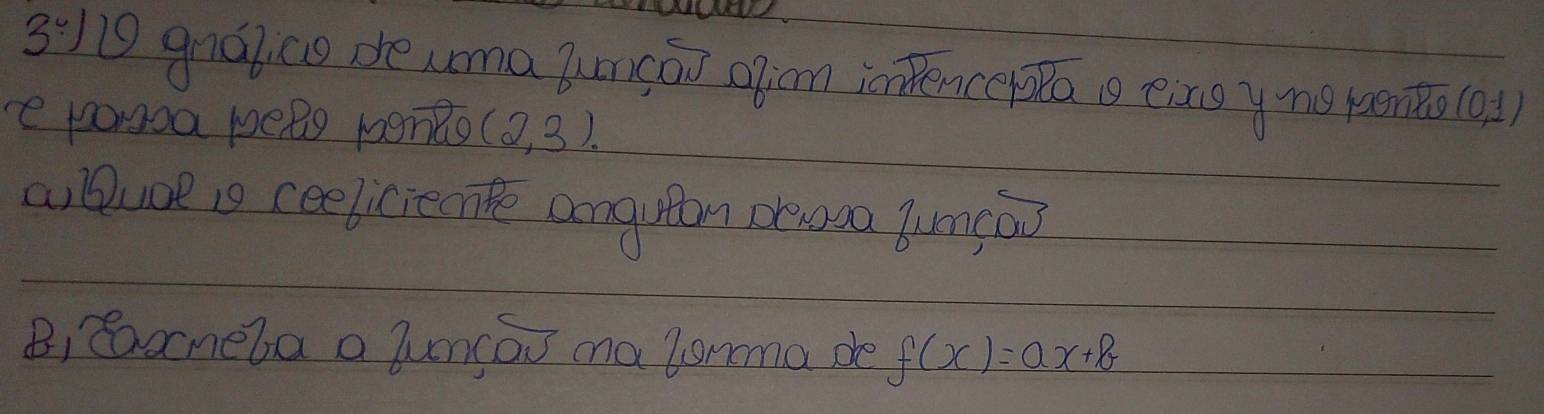 3º) O gráfico de uma função afim intercepta o eixo y no ponto (0,1)
e passa pelo ponto (2,3).
a) Qual o coeficiente angular dessa função
B) Escreva a função na forma de f(x)=ax+b